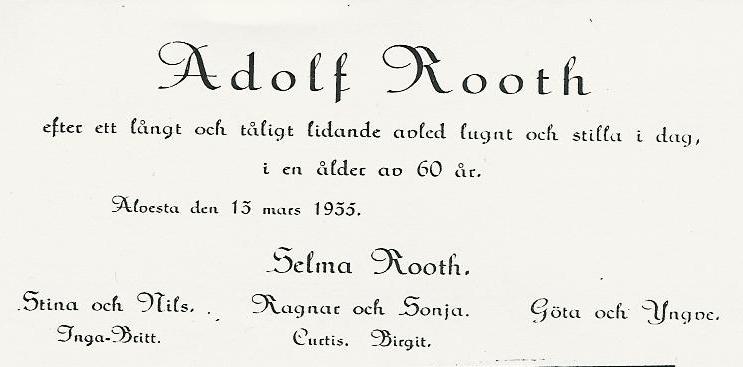 Adolf Rooth
efter ett långt och tåligt lidande avled lugnt och stilla i dag,
i en ålder av 60 år.
Alvesta den 13 mars 1935.
Selma Rooth.
Stina och Nils. Ragnar och Sonja. Göta och Yngve.
Inga-Britt. Curtis. Birgit.